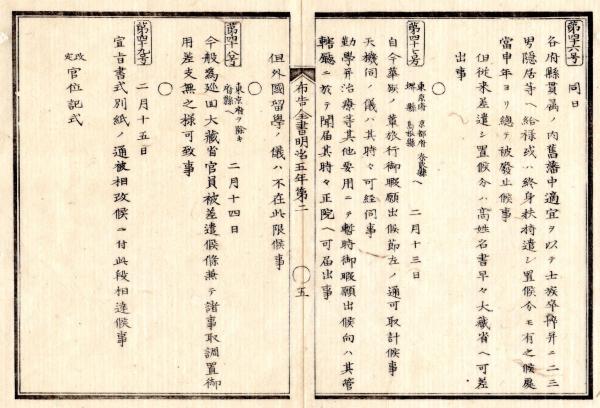 第四十六号 同日
各府縣貫属ノ内舊藩中適宜ヲ以テ士族卒倅并ニ二三
男隠居等ヘ給禄或ハ終身扶持遣シ置候分モ有之候處
當申年ヨリ總テ被廢止候事
但従来差遣シ置候分ハ高姓名書早々大藏省ヘ可差
出事
○
第四十七号 東京府 京都府 奈良縣ヘ 堺縣 島根縣 二月十三日
自今華族ノ輩旅行御暇願出候節左ノ通可取計候事
天機伺ノ儀ハ其時々可経伺事
勤學并治療等其他要用ニテ暫時御暇願出候向ハ其管
轄廳ニ於テ聞届其時々正院ヘ可届出事
布告全書明治五年第二 ○五
但外國留學ノ儀ハ不在此限候事
○
第四十八号 東京府ヲ除キ 府縣ヘ 二月十四日
今般為巡回大藏省官員被差遣候條兼テ諸事取調置御
用差支無之様可致事
○
第四十九号 二月十五日
宣旨書式別紙ノ通被相改候ニ付此段相達候事
改定 官位記式